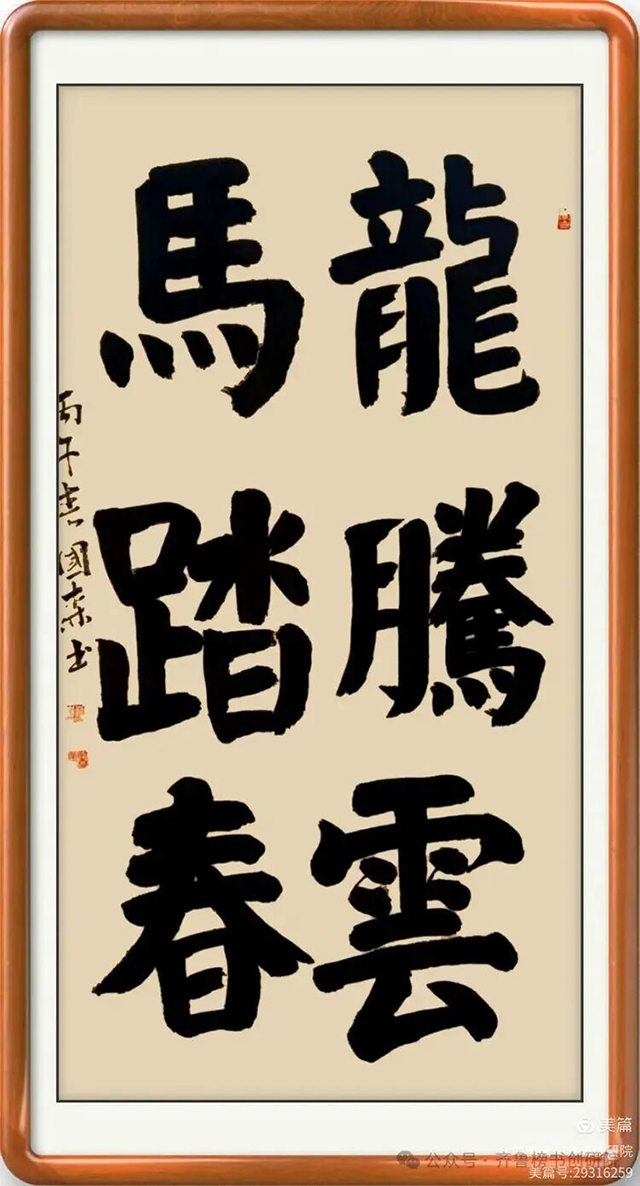 龍騰雲
馬踏春
丙午春國森书
美篇
公众号·齐鲁榜书创研院
美篇号:29316259